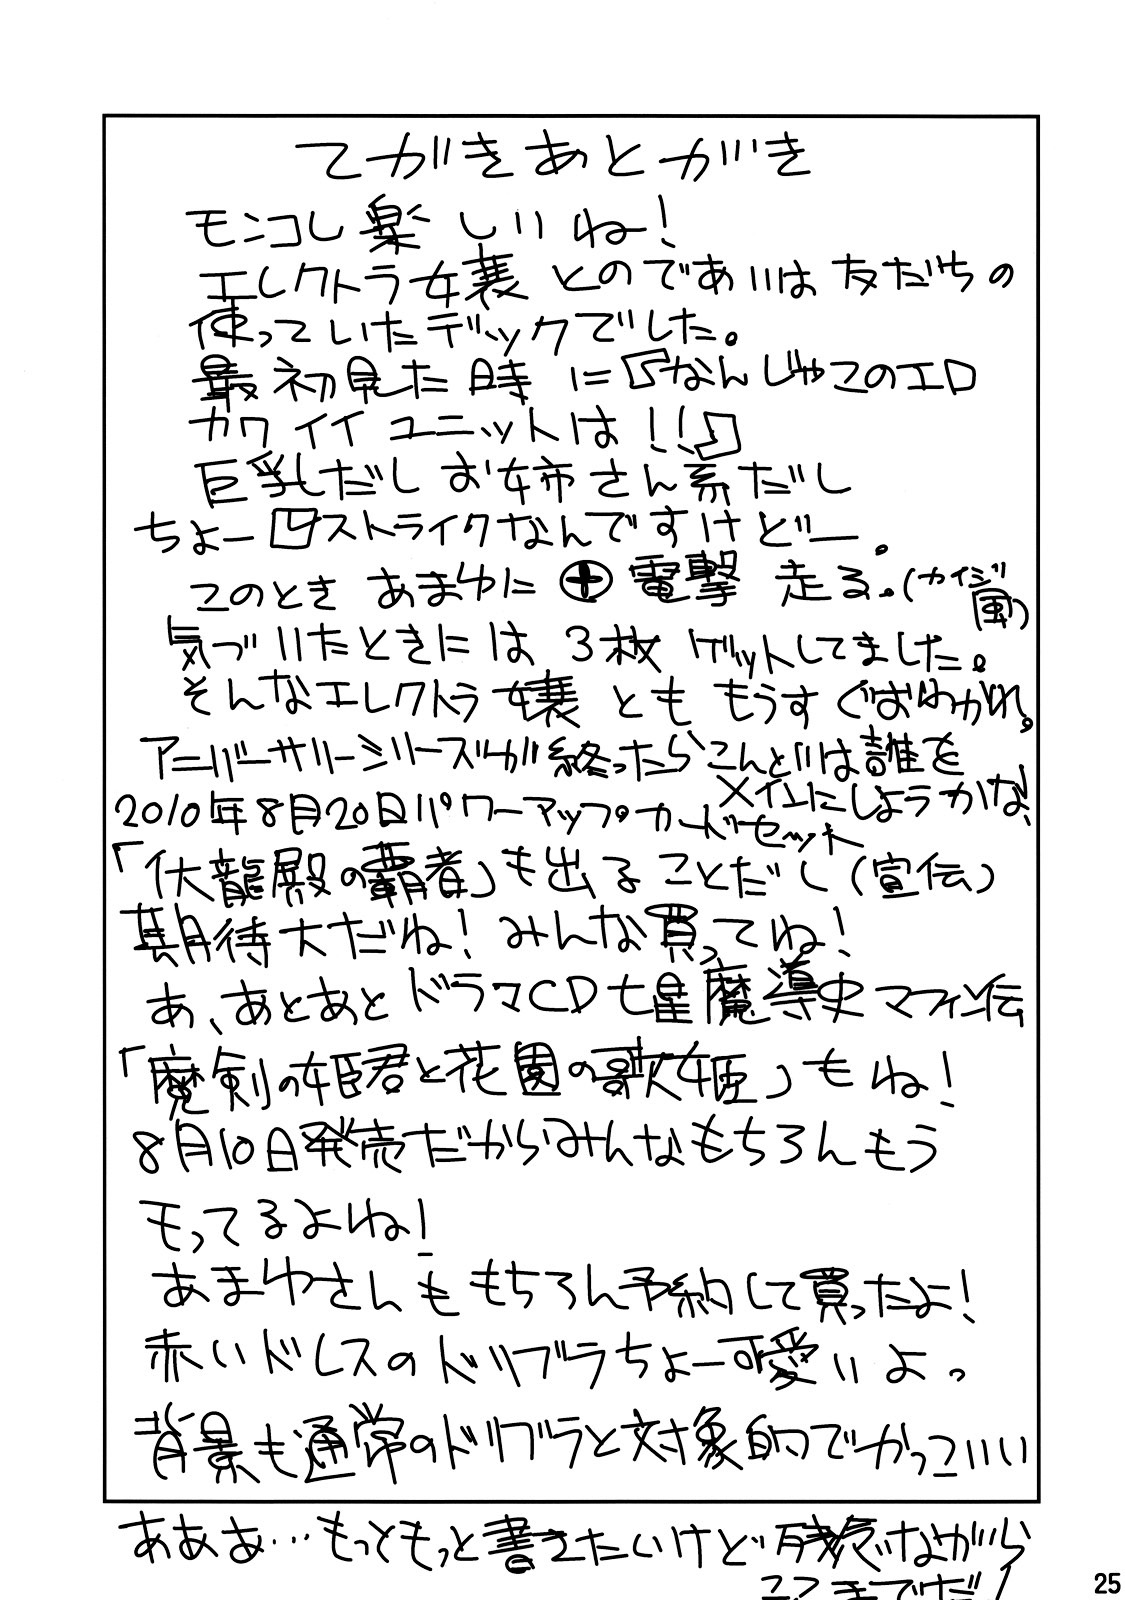 てがきあとがき
モンコレ楽しいね!
エレクトラ嬢とのであいは友だちの
使っていたデックでした。
最初見た時に『なんじゃこのエロ
カワイイユニットは!!』
巨乳だしお姉さん系だし
ちょーストライクなんですけどー。
このときあまゆに電撃走る。(カイジ風)
気づいたときには3枚ゲットしてました。
そんなエレクトラ嬢とももうすぐおわかれ。
アニバーサリーシリーズが終ったらこんどは誰を
メインにしようかな!
2010年8月20日パワーアップカードセット
「伏龍殿の覇者」も出ることだし(宣伝)
期待大だね!みんな買ってね!
あ、あとあとドラマCD七星魔導史マフィン伝
「魔剣の姫君と花園の歌姫」もね!
8月10日発売だからみんなもちろんもう
もってるよね!
あまゆさんももちろん予約して買ったよ!
赤いドレスのドリブラちょー可愛いよっ
背景も通常のドリブラと対象的でかっこいい
あああ…もっともっと書きたいけど残念ながら
ここまでだ!
25